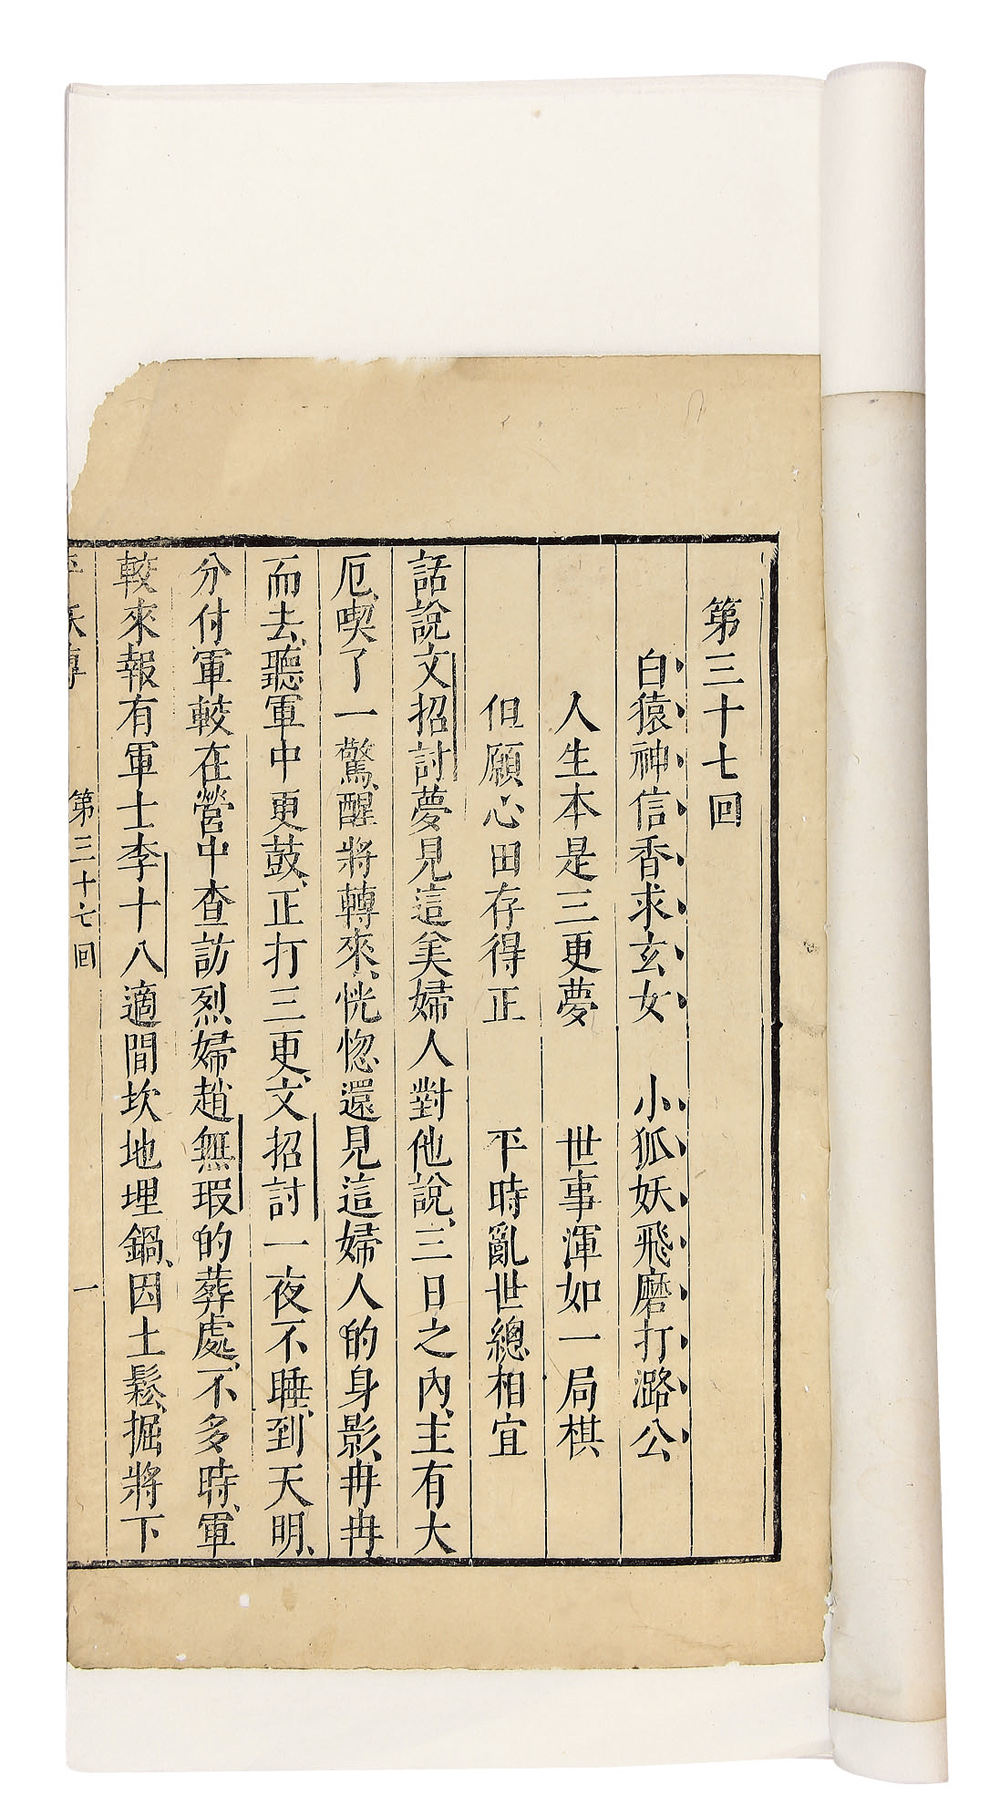 第三十七回
白猿神信香求玄女　小狐妖飛磨打潞公
人生本是三更夢　世事渾如一局棋
但願心田存得正　平時亂世總相宜
話說文招討夢見這𡙇婦人對他說、三日之內、主有大
厄、喫了一驚、醒將轉來、恍惚還見這婦人的身影、冉冉
而去、聽軍中更鼓、正打三更、文招討一夜不睡、到天明、
分付軍較在營中查訪烈婦趙無瑕的葬處、不多時、軍
較來報有軍士李十八適間坎地埋鍋、因土鬆、掘將下
平妖傳　第三十七回　一